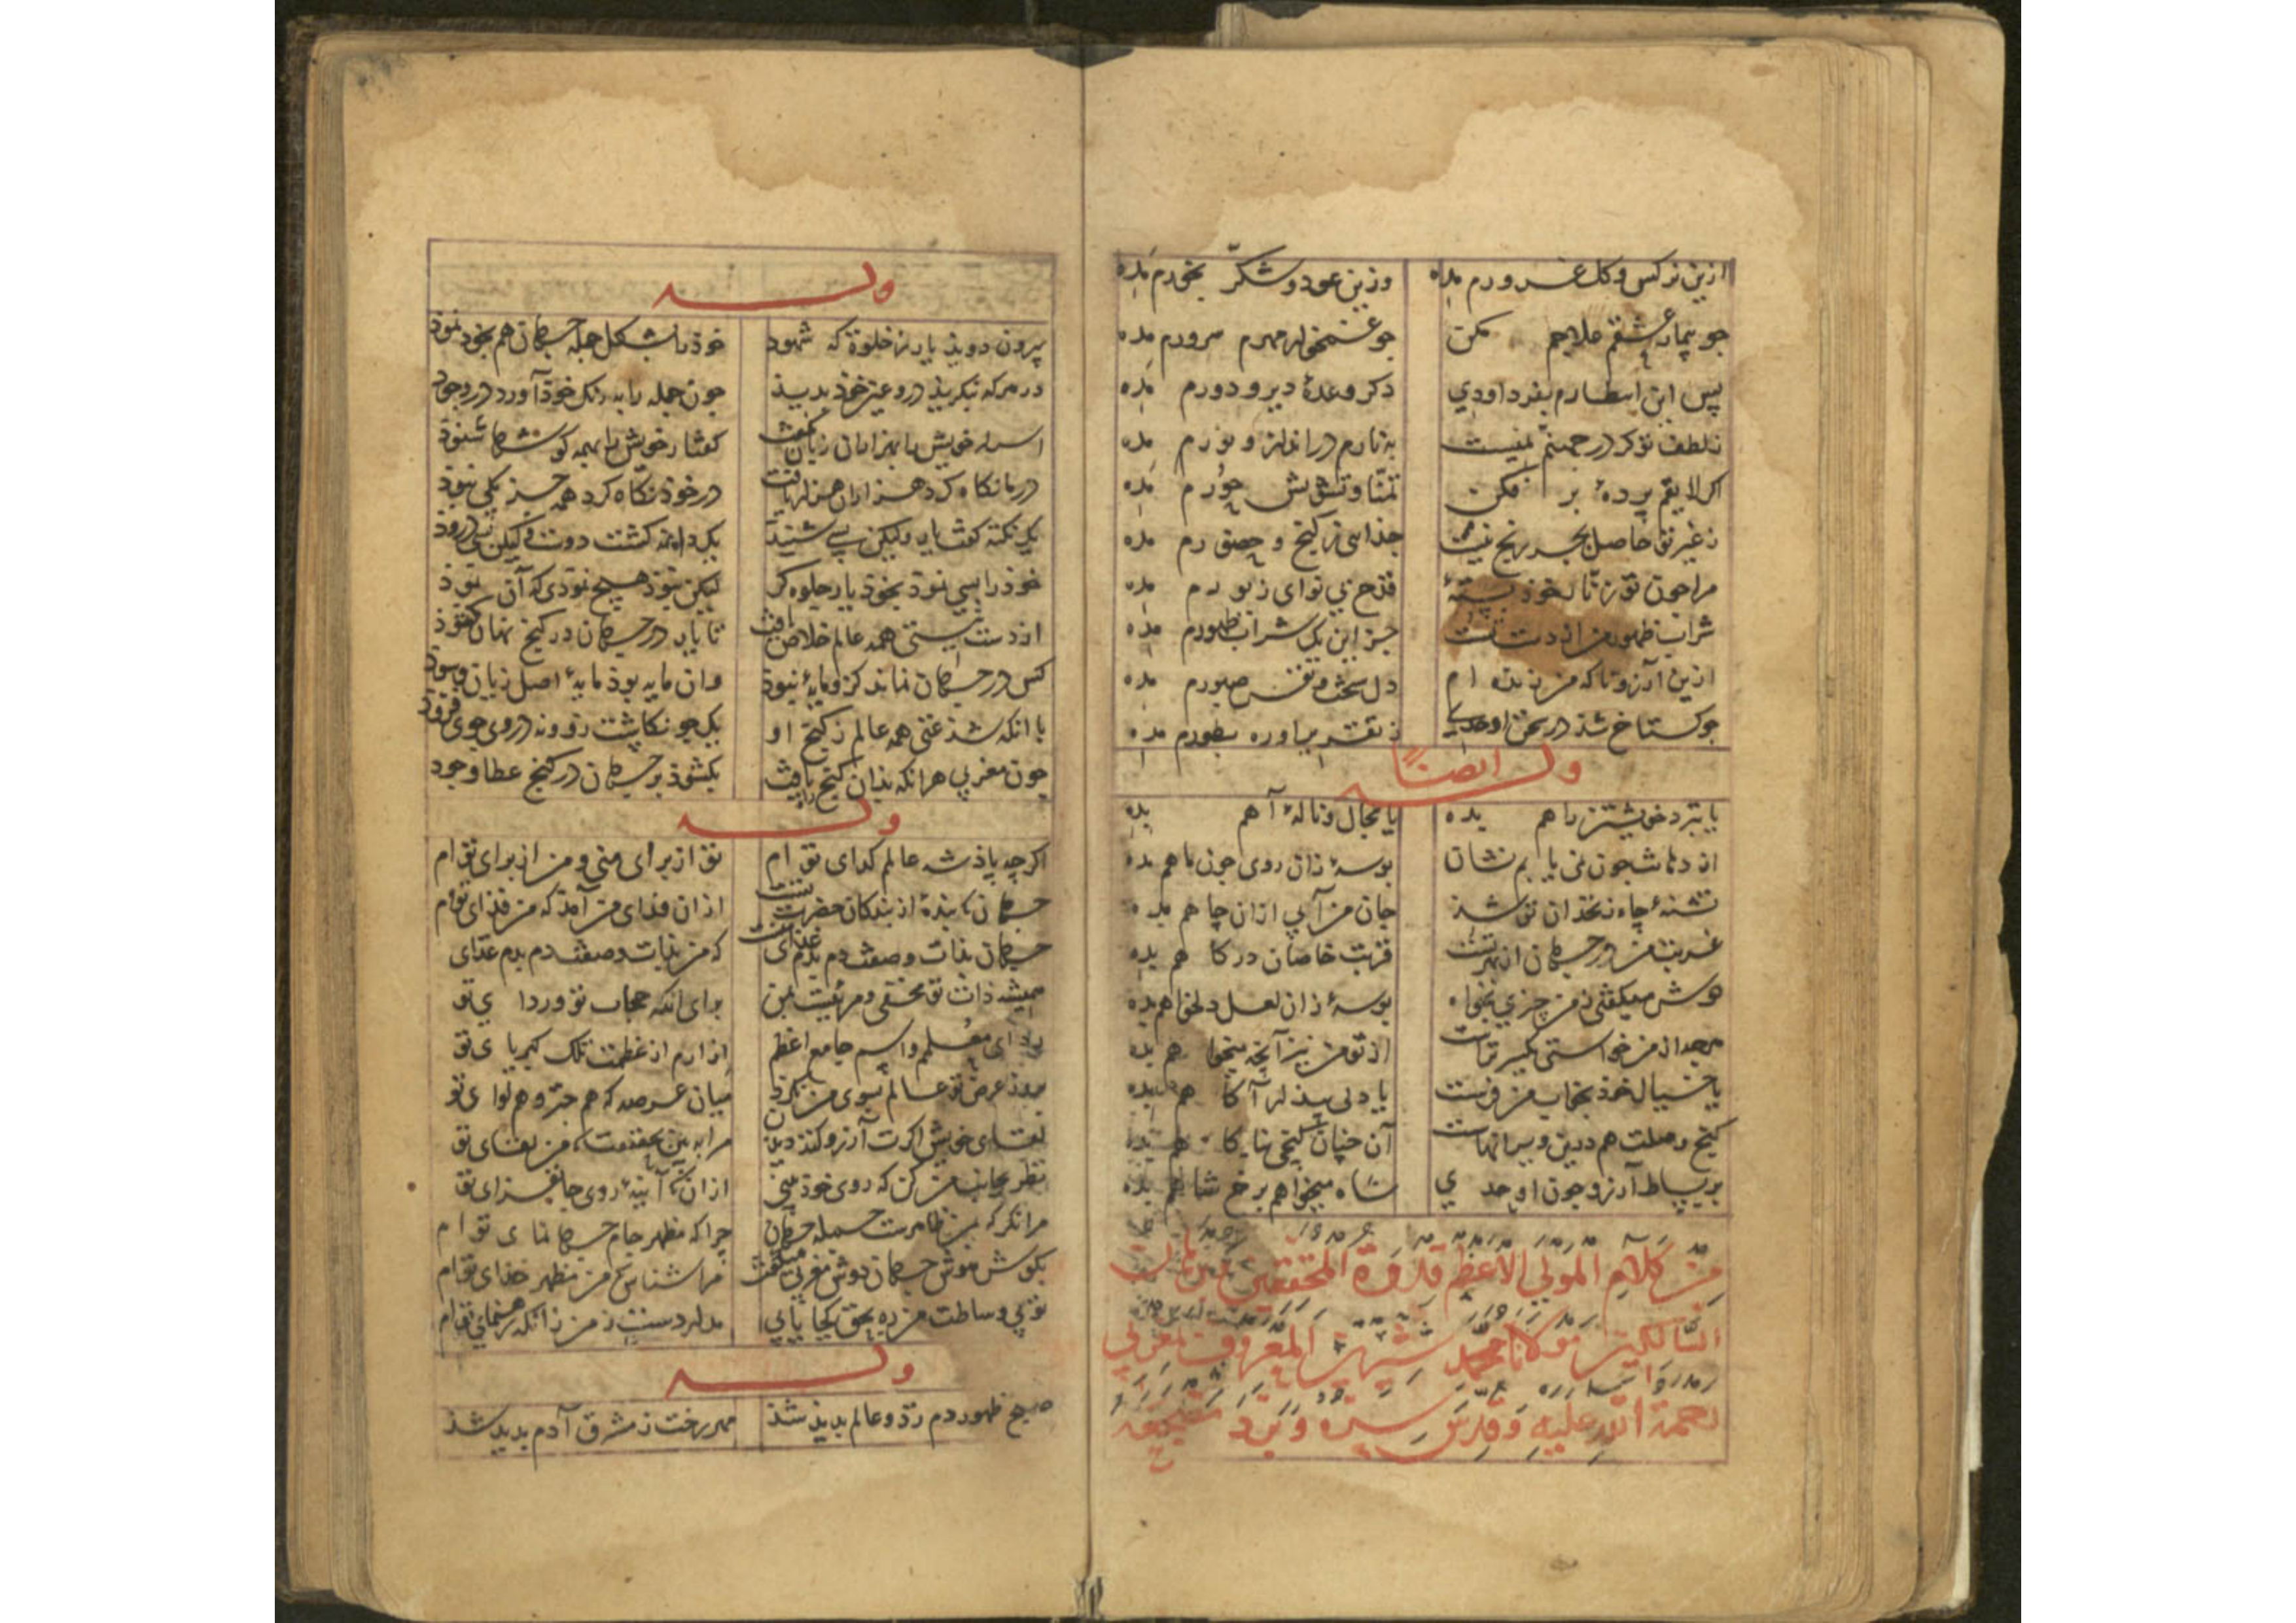 ازین نرکس وکل غرورم مده وزین عود و شکّر بخورم مده
جو بیمار عشقم علاجم مکن جو غمخوارمهرم سرورم مده
پس این اسطارم بفرد اودی دکر وعدهٔ دیر و دورم مده
زلطف توکر در جهنّم نیست به نارم در انداز و نورم مده
اکر لایقم پردهٔ بر فکن تمنّا و تشویش حورم مده
زغیر تو حاصل بجز رنج نیست جذایی زکنج و حصورم مده
مراجون تو زنّار خود بستهٔ قدح بی نوای زبورم مده
شراب ظهور من از دست تست جز این یک شراب طهورم مده
ازین آرزوتا که من زنده ام دل سخت و نفس صبورم مده
جو کستاخ شذ در سخن اوحدی ز نقش بیاوره بطورم مده
وله ایضاً
یا بنزد خویشتن راهم بده یا مجال ونالهٔ آهم بده
از دهانت جون نمی یابم نشان بوسهٔ زان روی جون ماهم بده
تشنهٔ چاه زنخدان تو شذ جان من آبی ازان چاهم بده
غربت من در جهان از بهر تست قربت خاصان درکاهم بده
دوش میکفتی زمن چیزی بخواه بوسهٔ زان لعل دلخواهم بده
هرچه از من خواستی یکسر تراست از تو من نیز آنچه میخواهم بده
یا خیال خود بخواب من فرست یا دلی بیذار آکاهم بده
کنج وصلت هم درین ویرانهاست آن چنان کنجی بناکاهم بده
بر بساط آرزو چون اوحدی شاه میخواهم برخ شاهم بده
من کلام المولی الاعظم قدوة المحققین
السّالکین مولانا محمد شیرین المعروف بمغربی
رحمة اللّه علیه وقدّس سرّه وبرّد مضجعه
وله
بیرون دویذ یار زخلوة که شهود خود را بشکل جمله جهان هم بخود نمود
در هرکه بنکریذ درو عین خوذ بدیذ جون جمله را به رنک خوذ آورد در وجود
اسرار خویش را بهزاران زبان بکفت کفتار خویش را بهمه کوشها شنوذ
درما نکاه کرد هزاران هزار یافت در خوذ نکاه کرد همه جز یکی نبوذ
یک نکته کفت یار ولیکن بسی شنید یک دانه کشت دوست ولیکن بسی دروذ
خوذ را بسی نموذ بخوذ یار جلوه کر لیکن نبوذ هیچ نموذی که آن نموذ
از دست نیستی همه عالم خلاص یافت تا یار در جهان در کنج نهان کشوذ
کس در جهان نماند کزو مایهٔ نبوذ وان مایه بوذ مایهٔ اصل زیان و سود
با انکه شذ غنی همه عالم زکنج او یک جو نکاشت زو ونه در وی جوی فزوذ
جون مغربی هرانکه بذان کنج راه یافت بکشوذ بر جهان در کنج عطا وجود
وله
اکرچه پاذشه عالم کدای توام تو از برای منی و من از برای توام
جهان که بندهٔ از بندکان حضرت تست از ان فدای من آمد که من فدای توام
جهان بذات وصفت دم بدم غذای منست که من بذات وصفت دم بدم غذای
همیشه ذات تو مخفی و مرئیست بمن برای انکه حجاب تو و ردای تو
ردای معلم و اسم جامع اعظم ازارم از عظمت تلک کبریای تو
بروز عرض تو عالم بسوی من نکرد میان عرصه که هم جتر و هم لوای تو
لقای خویش اکرت آرزو کند دیدن مرا به بین بحقیقت، من لقای تو
نظر بجانب من کن که روی خوذ بینی از ان که آینهٔ روی جانفزای تو
مرا نکر که بمن ظاهرست جمله جهان چرا که مظهر جام جهان نمای توام
بکوش هوش جهان دوش مغربی میکفت مرا شناس که من مظهر خذای توام
تو بی وساطت من ره بحق کجا یابی مدار دست زمن زانکه رهنمای توام
وله
صبح ظهور دم زد و عالم بدیذ شذ مهر رخت ز مشرق آدم بدید شذ